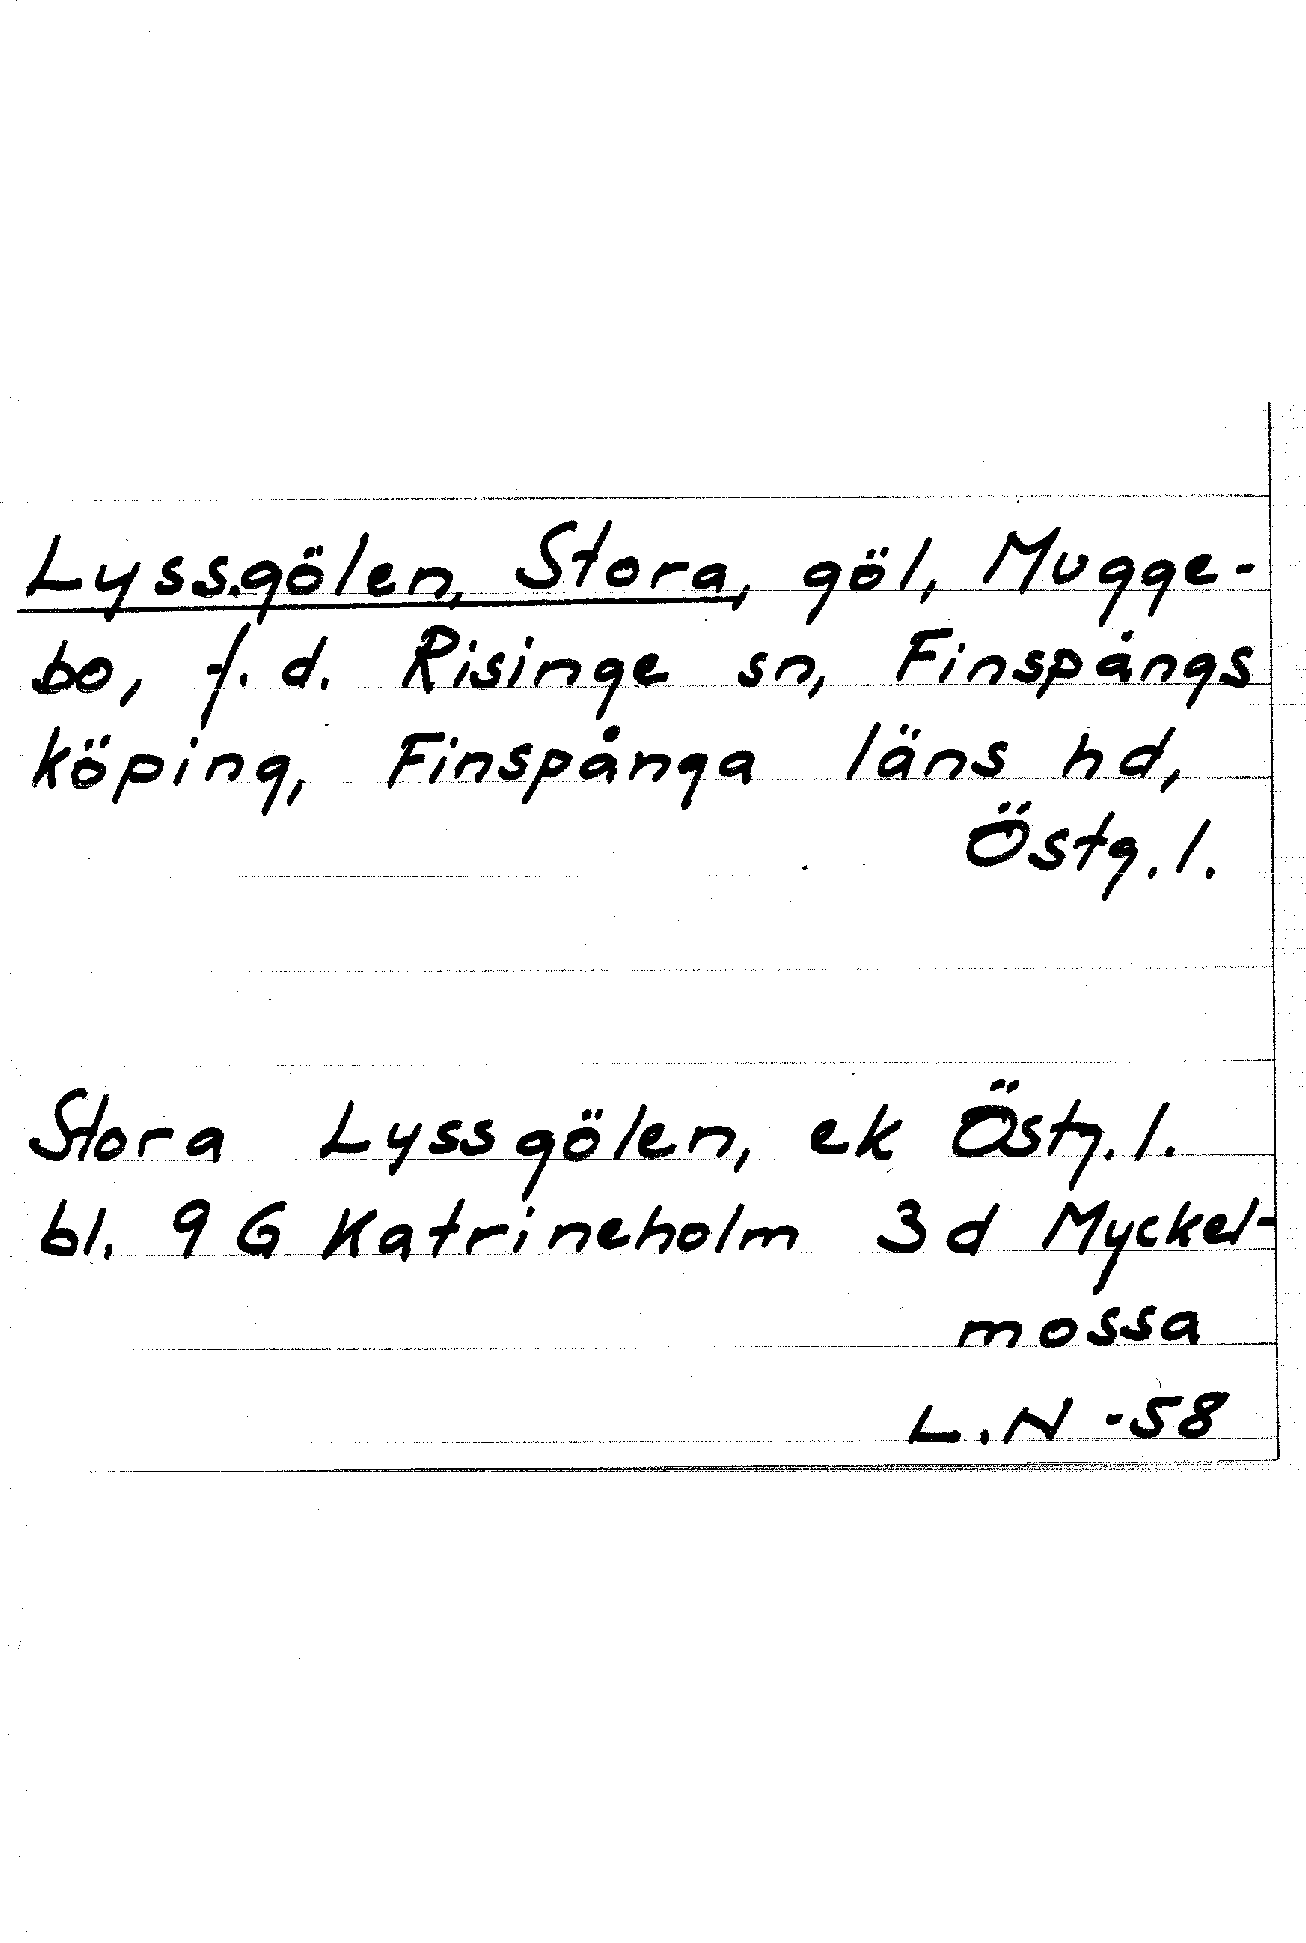 Lyssgölen, Stora, göl, Mugge-
bo, f.d. Risinge sn, Finspångs
köping, Finspånga läns hd,
Östg.l.
Stora Lyssgölen, ek Östg.l.
bl. 9 G Katrineholm 3 d Myckel-
mossa
L.N -58